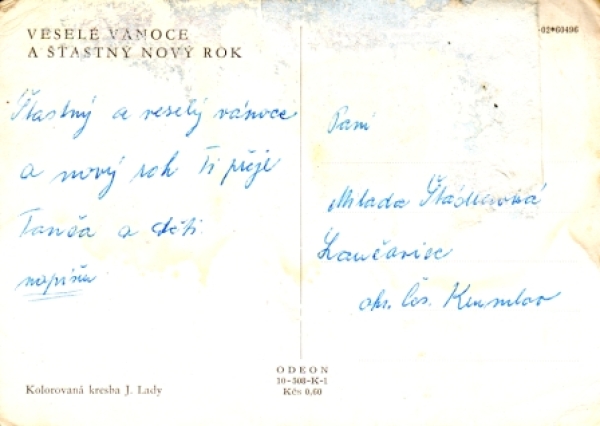 VESELÉ VÁNOCE
A ŠŤASTNÝ NOVÝ ROK
Šťastný a veselý vánoce
a nový rok Ti přeje
a děti
napíšu
Kolorovaná kresba J. Lady
ODEON
10-308-K-1
Kčs 0,60
02*60406
Paní
Mlada
okr. Čes. Krumlov